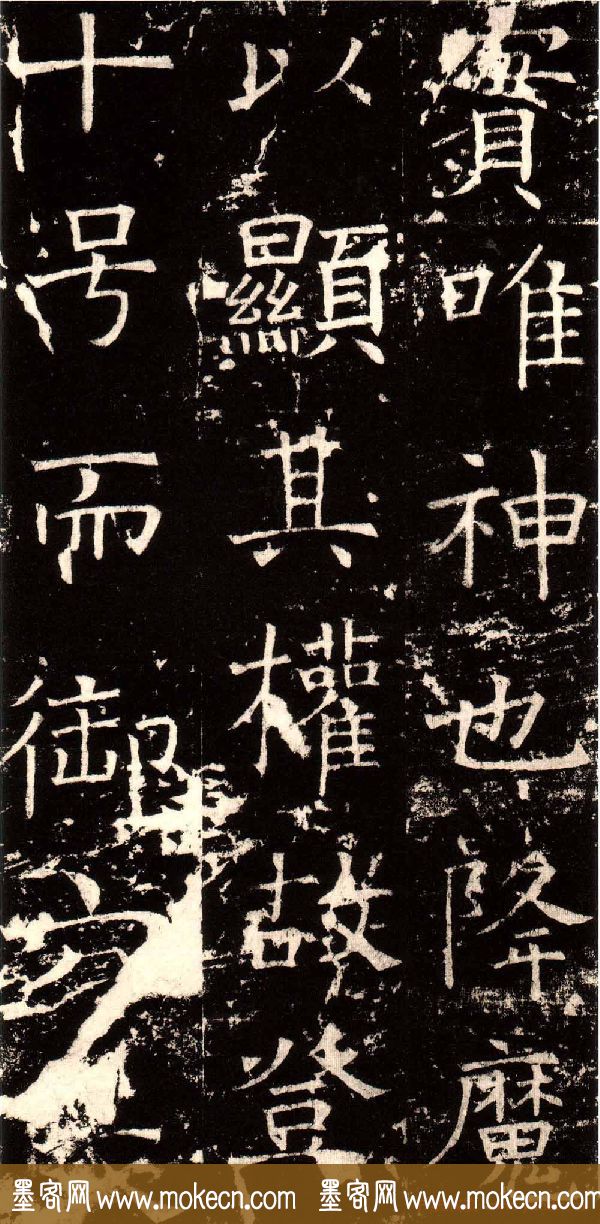 實唯神也降魔
以顯其權故登
十号而御
墨客网 www.mokecn.com 墨客网 www.mokecn.com